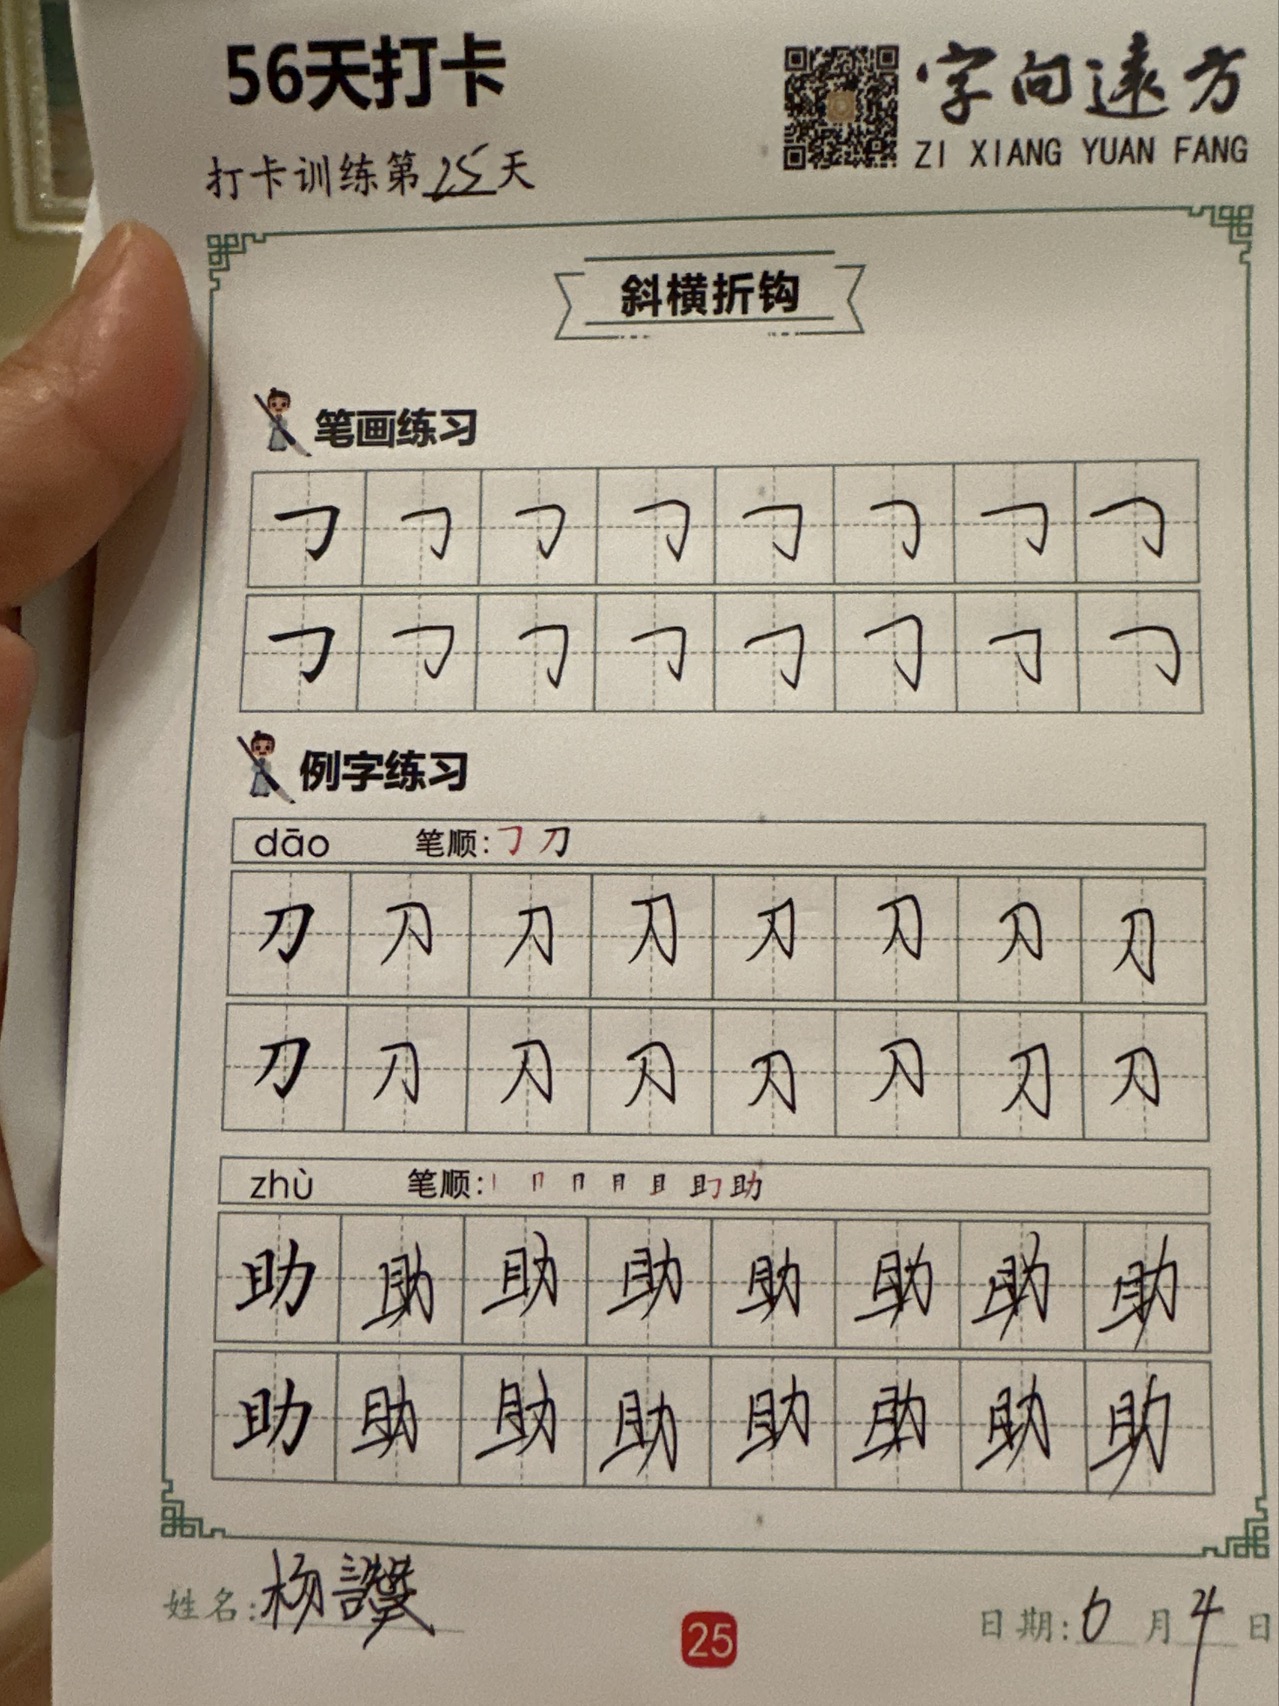 56天打卡
字向遠方
ZI XIANG YUAN FANG
打卡训练第25天
斜横折钩
笔画练习
例字练习
dāo 笔顺: ㇆ 刀
刀 刀 刀 刀 刀 刀 刀 刀
刀 刀 刀 刀 刀 刀 刀 刀
zhù 笔顺: 助
助 助 助 助 助 助 助 助
助 助 助 助 助 助 助 助
姓名: 杨
25
日期: 6月4日